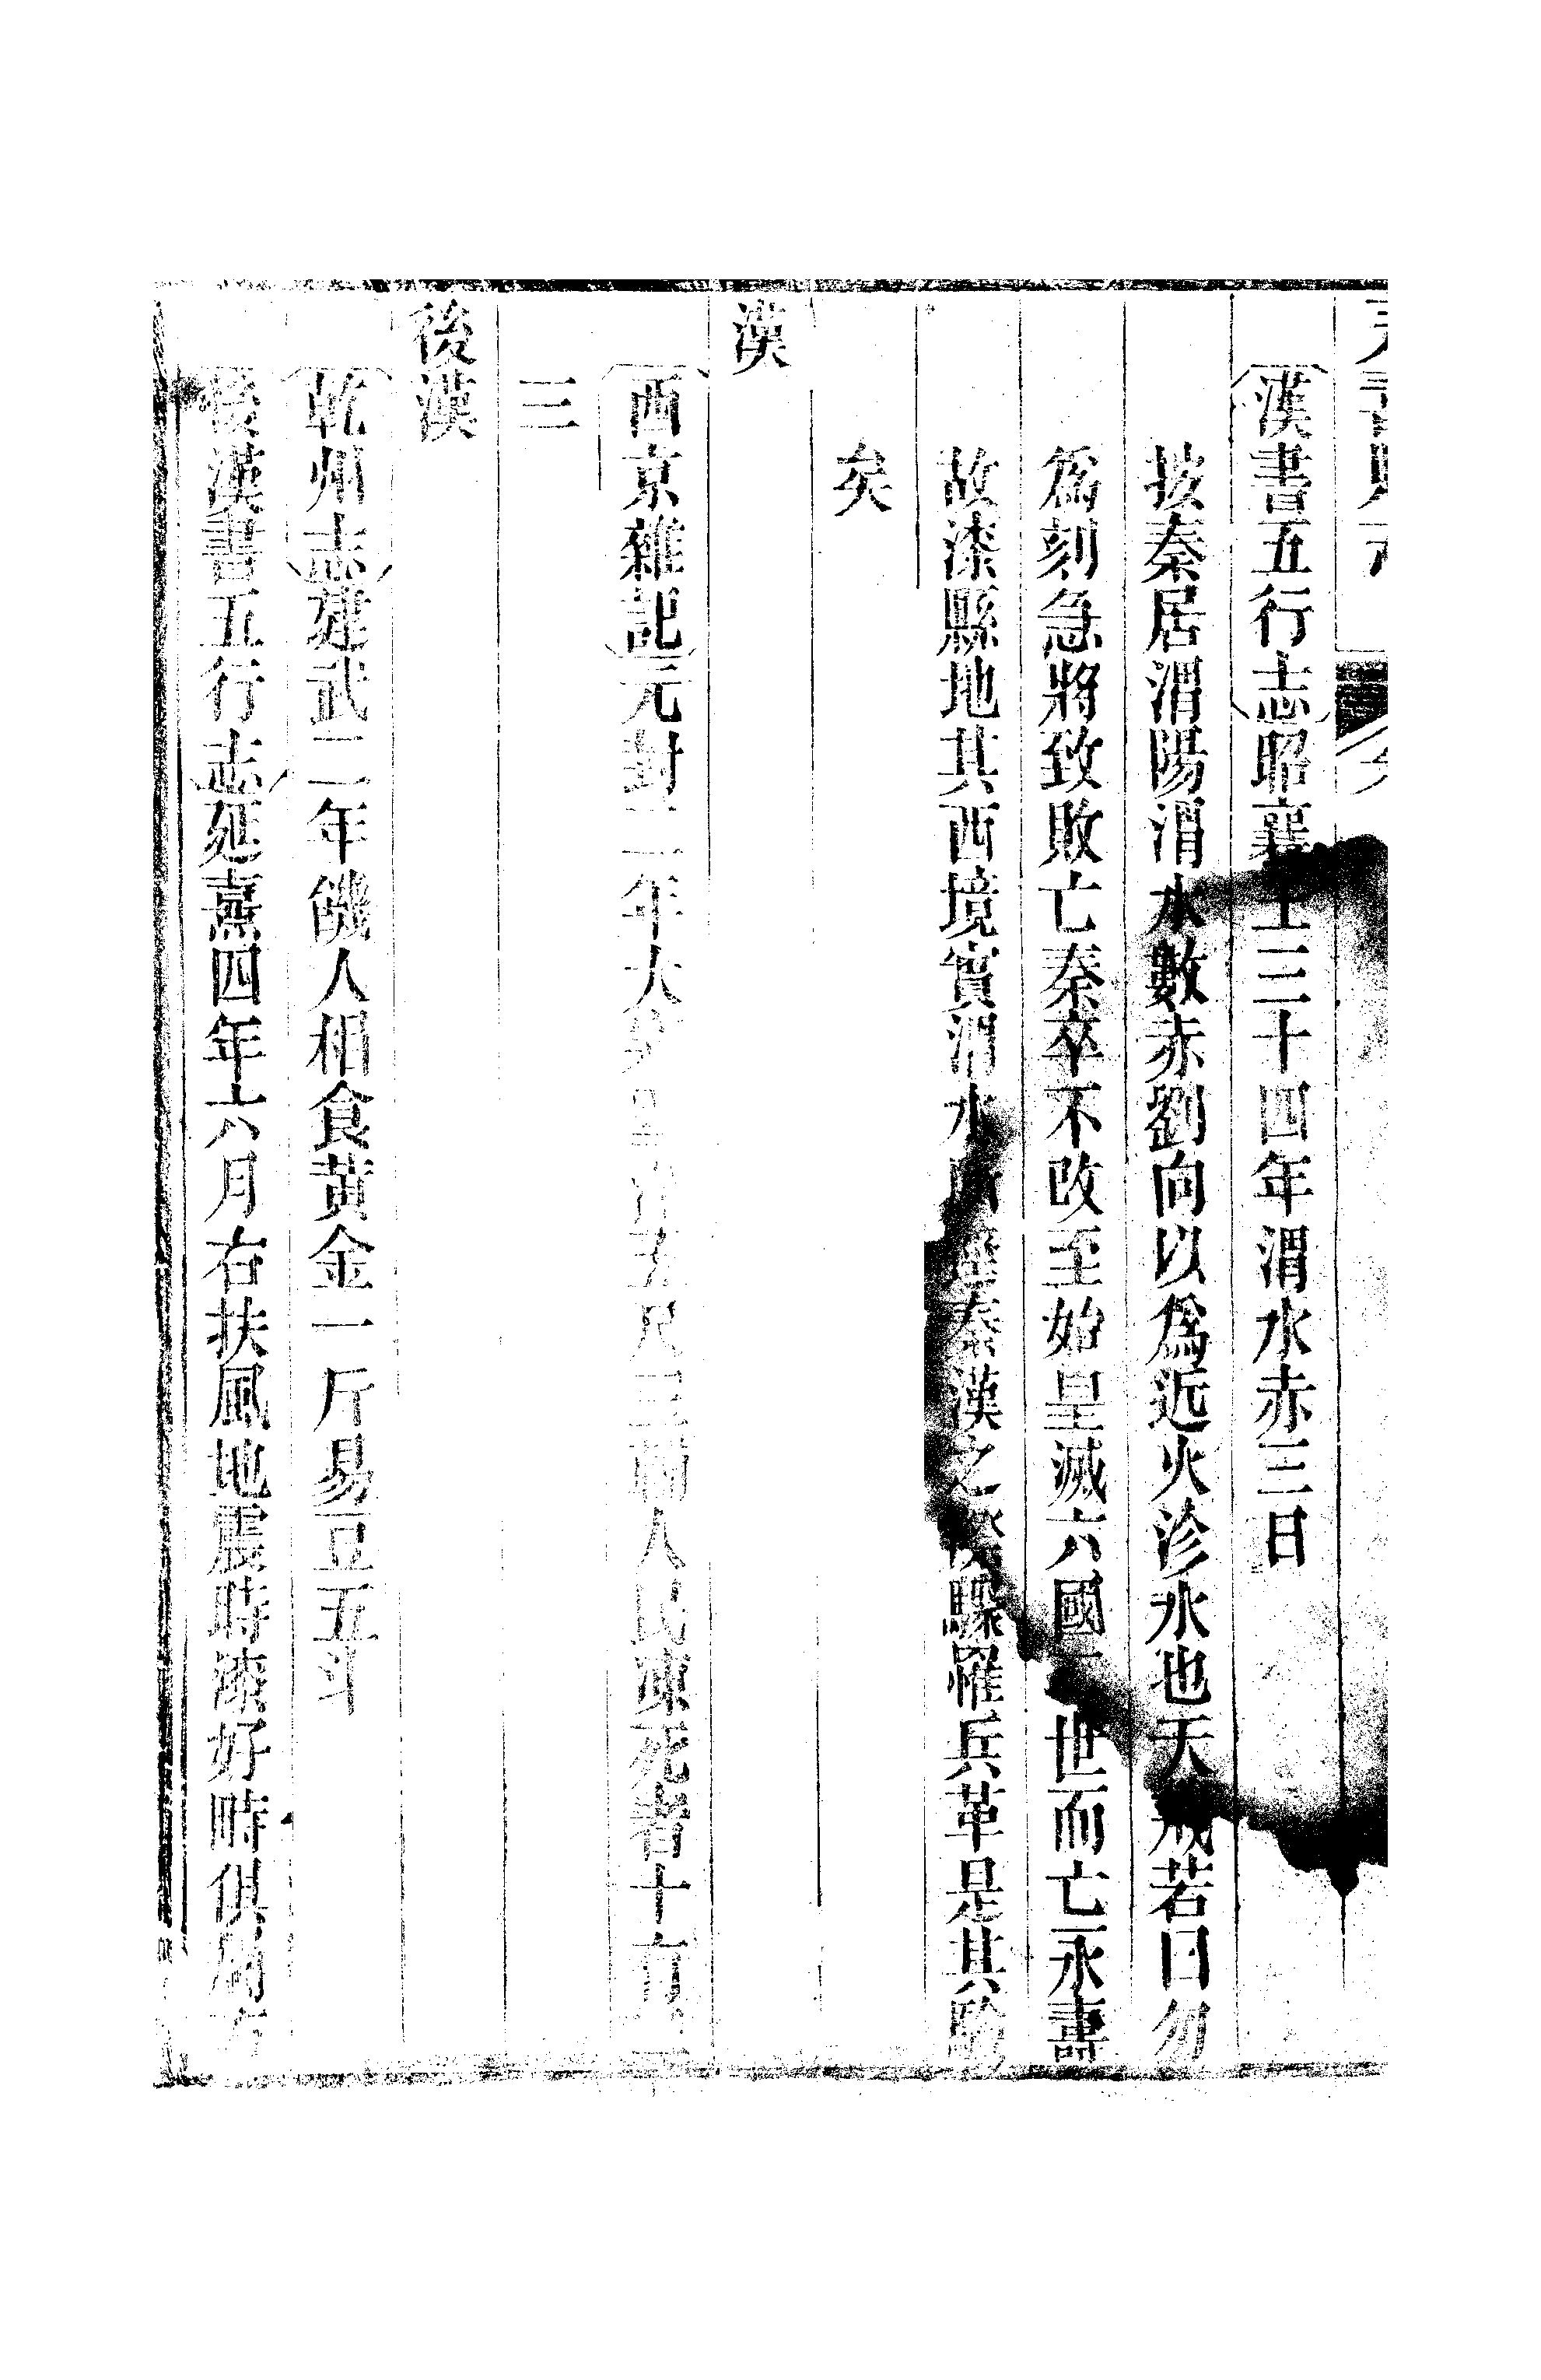 漢書五行志昭襄王三十四年渭水赤三日
按秦居渭陽渭水數赤劉向以爲近火沴水也天戒若曰勿
爲刻急將致敗亡秦卒不改至始皇滅六國二世而亡永壽
故漆縣地其西境實渭水所經秦漢之驟罹兵革是其驗
矣
漢
西京雜記元封二年大雪深五尺三輔人民凍死者十有二
三
後漢
乾州志建武二年饑人相食黄金一斤易豆五斗
後漢書五行志延熹四年六月右扶風地震時漆好畤俱屬右